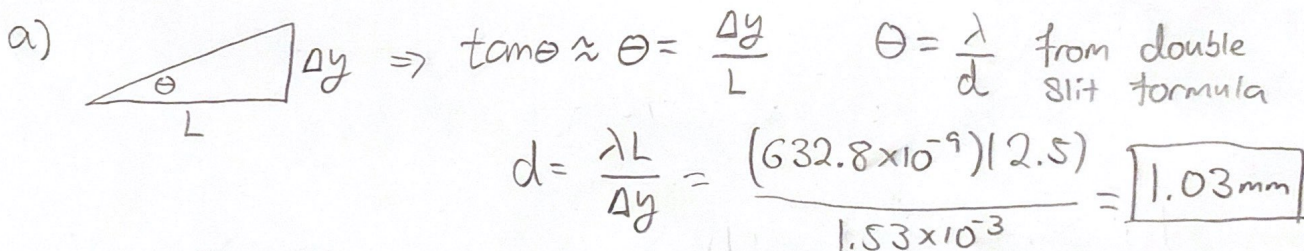 a) θ L Δy ⇒ tanθ ≈ θ = Δy/L θ = λ/d from double
slit formula
d = λL/Δy = (632.8×10⁻⁹)(2.5)/1.53×10⁻³ = 1.03mm